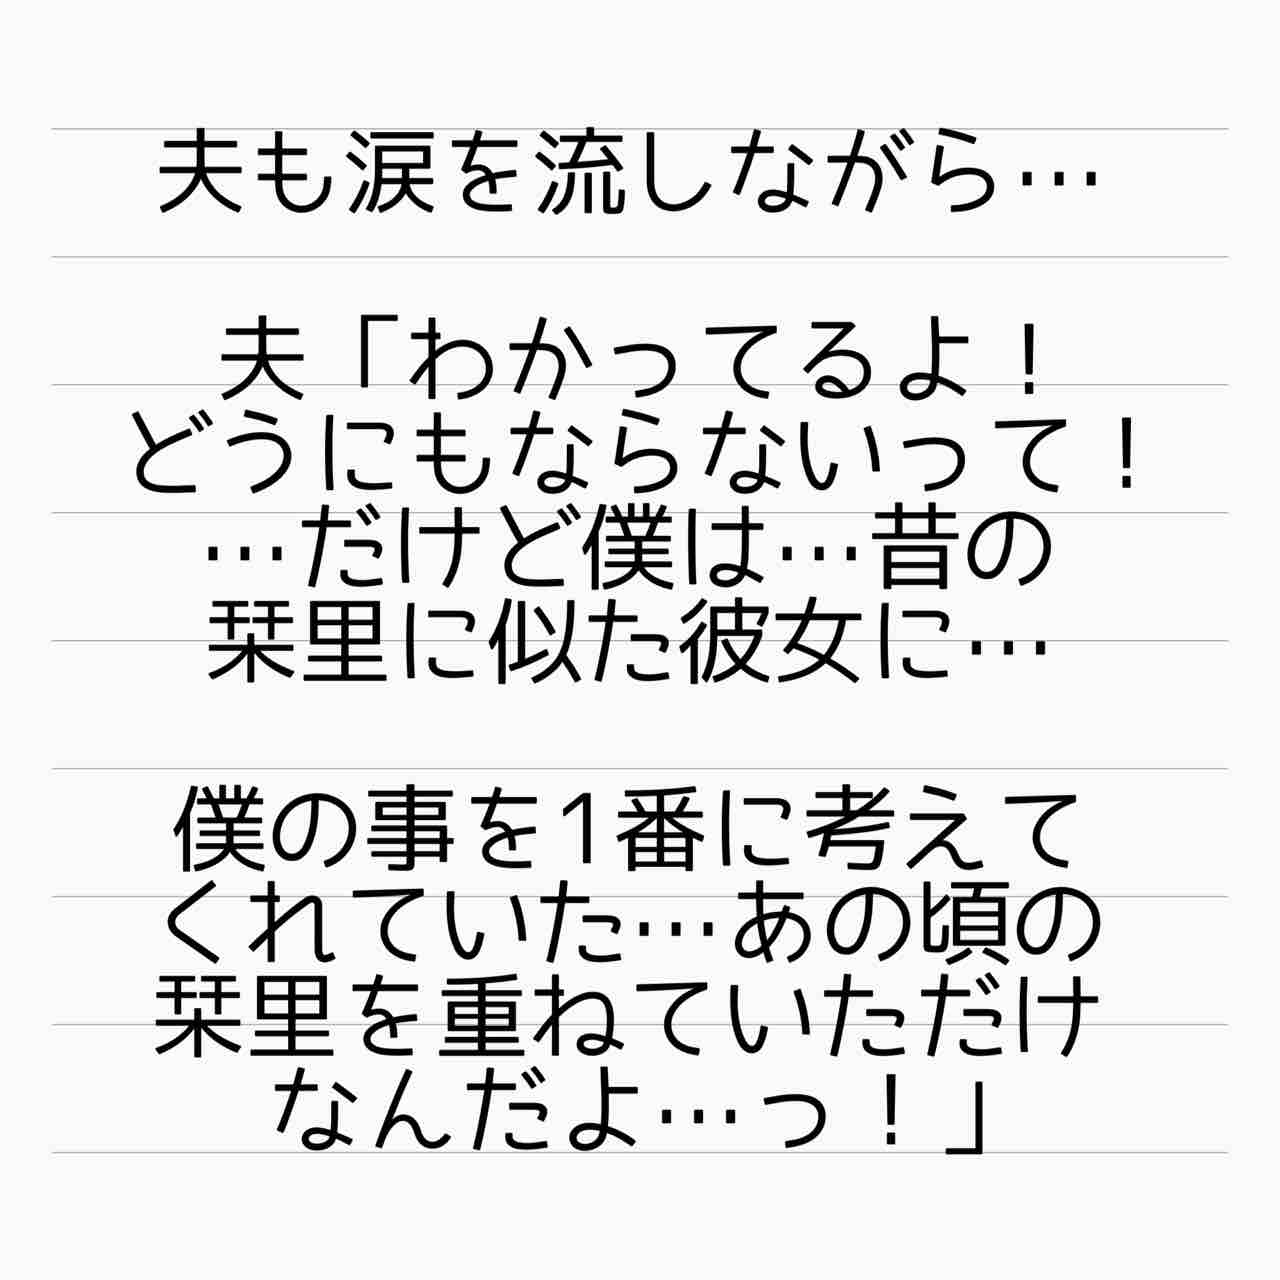 夫も涙を流しながら…
夫「わかってるよ！
どうにもならないって！
…だけど僕は…昔の
栞里に似た彼女に…
僕の事を1番に考えて
くれていた…あの頃の
栞里を重ねていただけ
なんだよ…っ！」